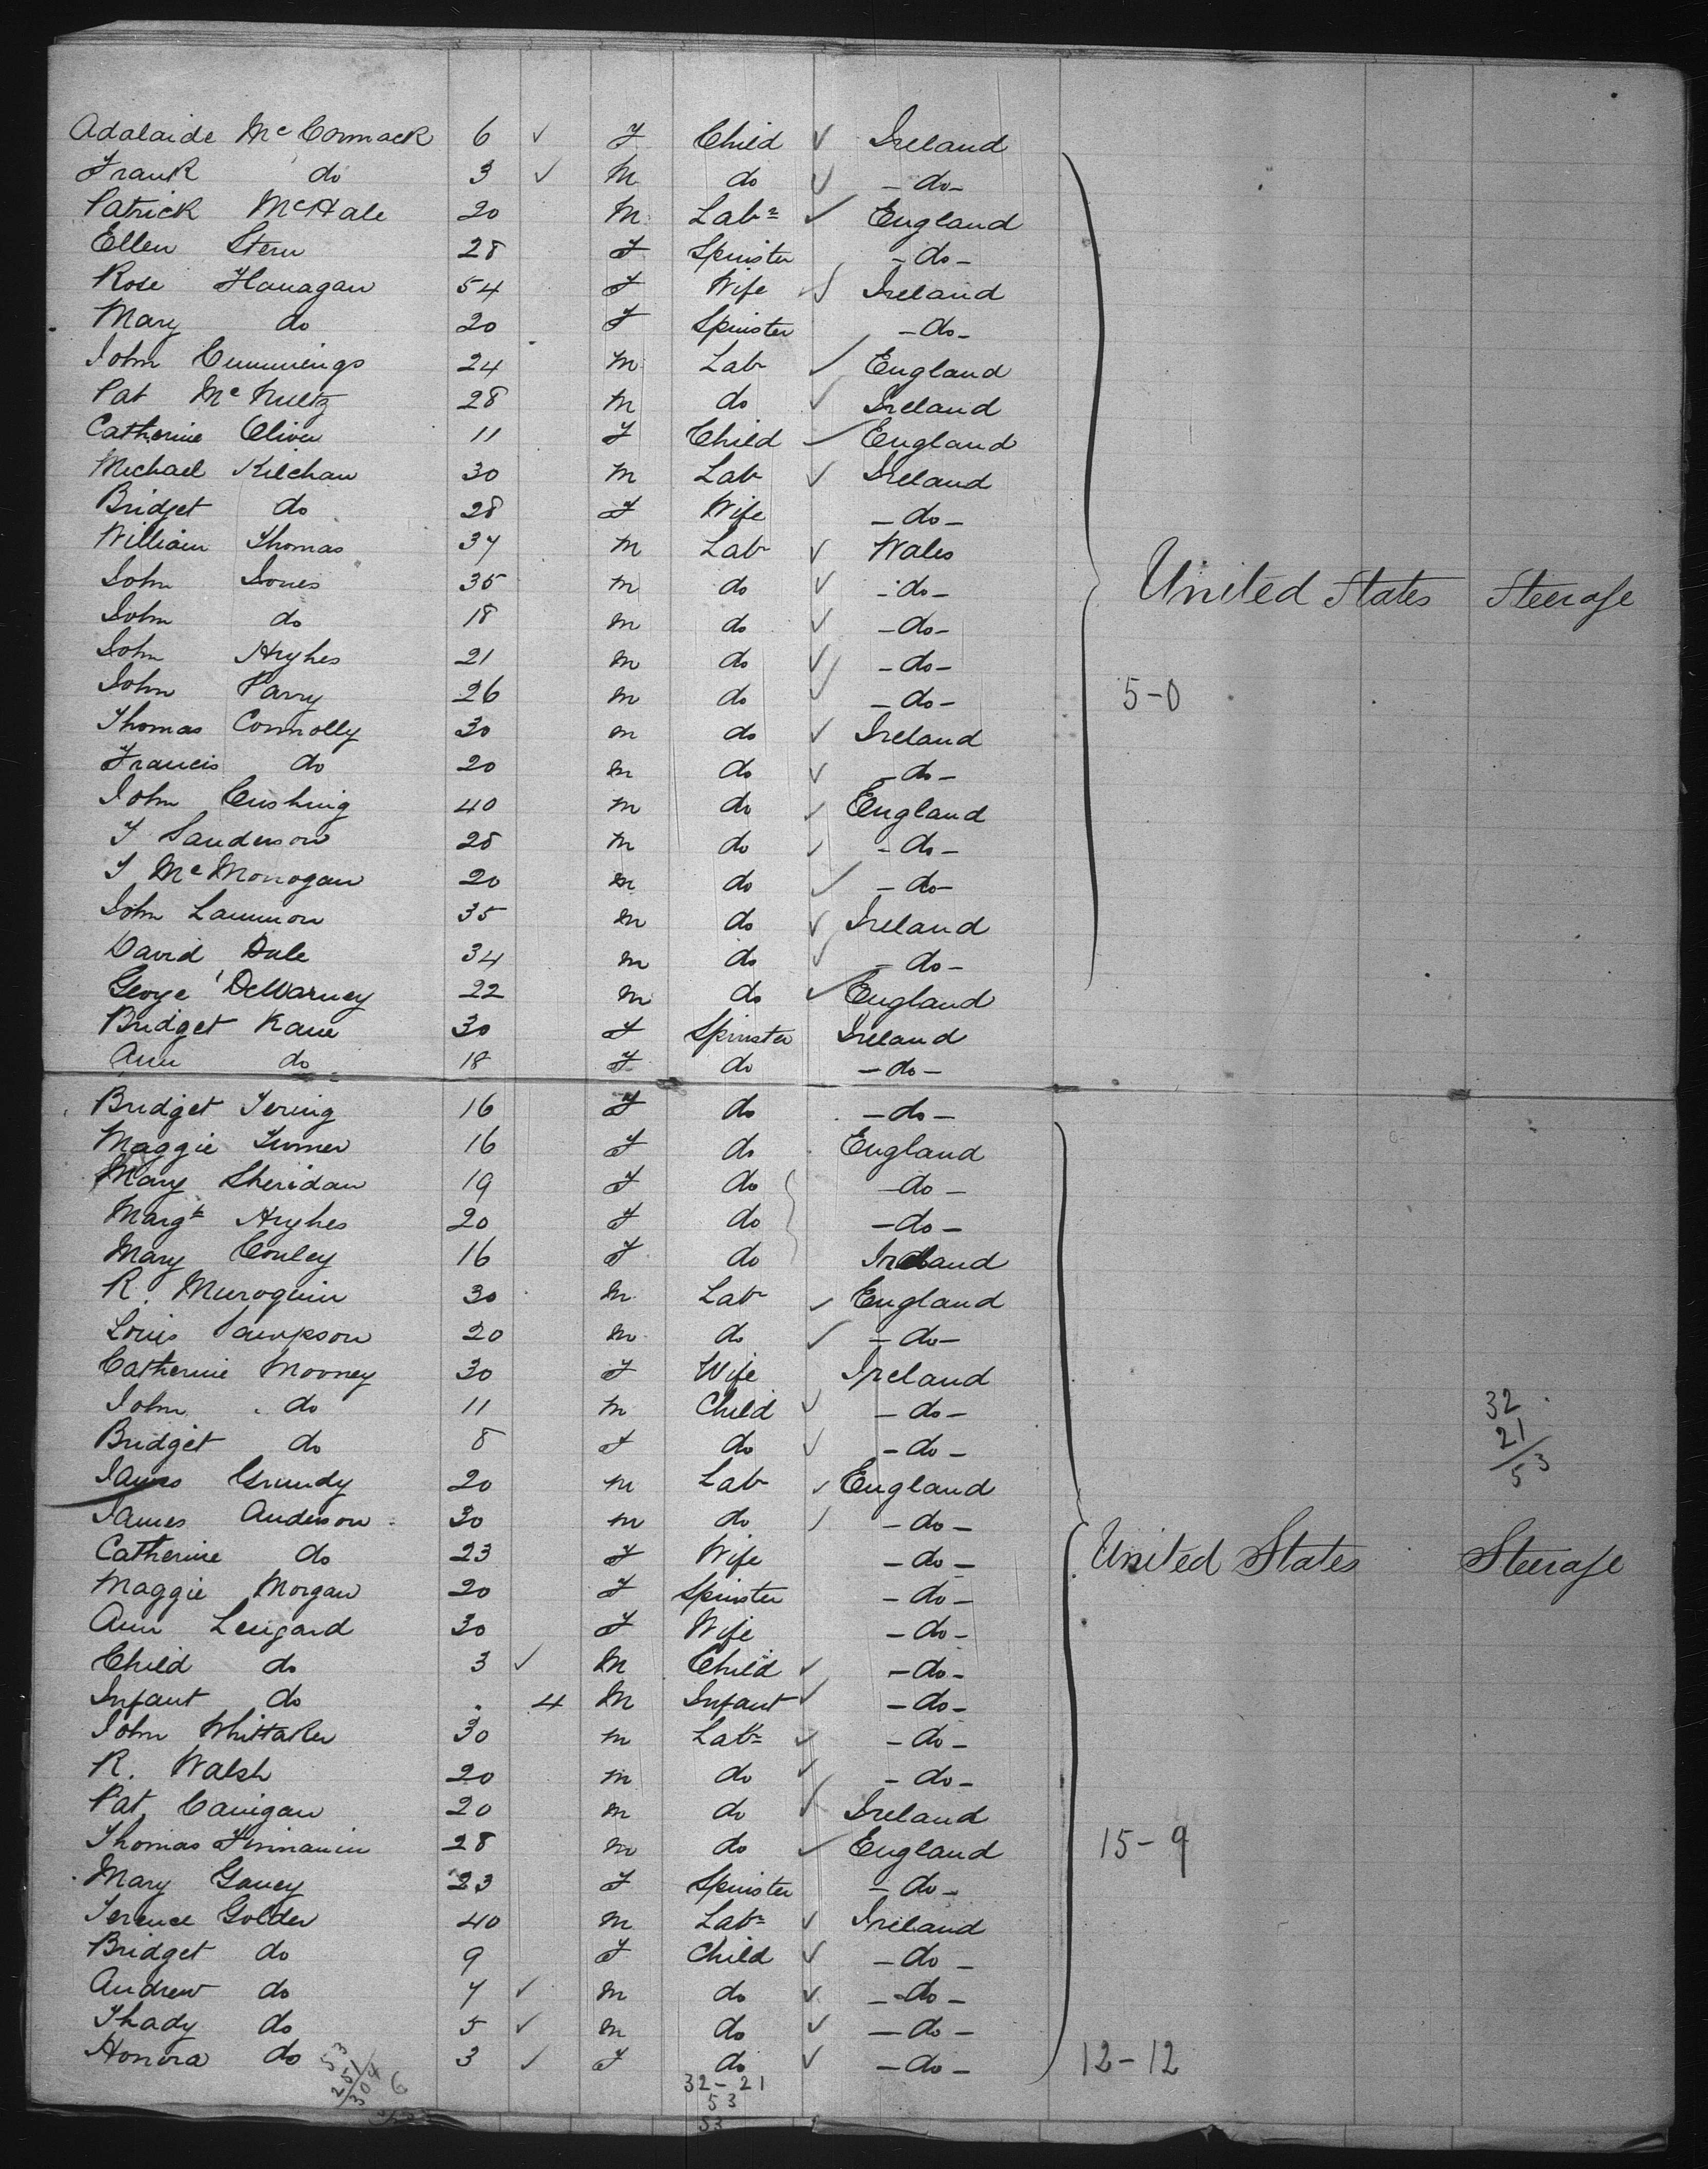 Adalaide McCormack 6 ✓ F Child ✓ Ireland
Frank do 3 ✓ M do ✓ -do-
Patrick McHale 20 M Labr ✓ England
Ellen Stern 28 F Spinster -do-
Rose Flanagan 54 F Wife ✓ Ireland
Mary do 20 F Spinster -do-
John Cummings 24 M Labr ✓ England
Pat McNulty 28 M do ✓ Ireland
Catherine Oliver 11 F Child ✓ England
Michael Kilchan 30 M Labr ✓ Ireland
Bridget do 28 F Wife -do-
William Thomas 34 M Labr ✓ Wales
John Jones 35 M do ✓ -do- United States Steerage
John do 18 M do ✓ -do-
John Hughes 21 M do ✓ -do-
John Parry 26 M do ✓ -do- 5-0
Thomas Connolly 30 M do ✓ Ireland
Francis do 20 M do ✓ -do-
John Cushing 40 M do ✓ England
J Sanderson 28 M do ✓ -do-
J McMonogan 20 M do ✓ -do-
John Lammon 35 M do ✓ Ireland
David Dale 34 M do ✓ -do-
George DeWarney 22 M do ✓ England
Bridget Kane 30 F Spinster Ireland
Ann do 18 F do -do-
Bridget 16 F do -do-
Maggie Turner 16 F do England
Mary Sheridan 19 F do -do-
Margt Hughes 20 F do -do-
Mary Conley 16 F do Ireland
R. 30 M Labr ✓ England
Louis Sampson 20 M do ✓ -do-
Catherine Mooney 30 F Wife Ireland
John do 11 M Child ✓ -do- 32
Bridget do 8 F do ✓ -do- 21
James Grundy 20 M Labr ✓ England 53
James Anderson 30 M do ✓ -do-
Catherine do 23 F Wife -do- United States Steerage
Maggie Morgan 20 F Spinster -do-
Ann Lengard 30 F Wife -do-
Child do 3 ✓ M Child ✓ -do-
Infant do . 4 M Infant ✓ -do-
John Whittaker 30 M Labr ✓ -do-
R. Walsh 20 M do ✓ -do-
Pat Canigan 20 M do ✓ Ireland
Thomas 28 M do ✓ England 15-9
Mary Gavey 23 F Spinster -do-
Terence Golder 40 M Labr ✓ Ireland
Bridget do 9 F Child ✓ -do-
Andrew do 7 ✓ M do ✓ -do-
Thady do 5 ✓ M do ✓ -do-
Honora do 3 ✓ F do ✓ -do- 12-12
53 32-21
251 53
304 6 53